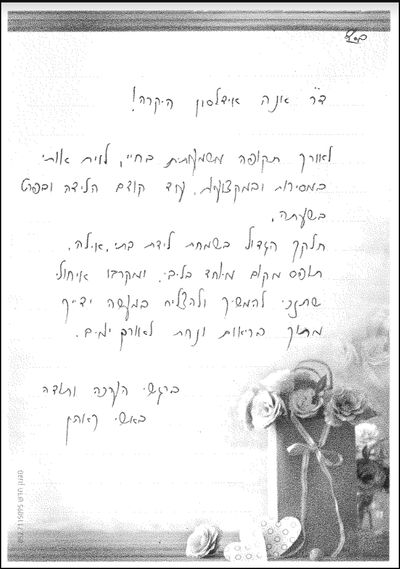 בס"ד
ד"ר אנה אידלסון היקרה!
לאורך תקופה משמעותית בחיי, לוית אותי
במסירות ובמקצועיות. עוד קודם הלידה ובפרט
בשעתה.
חלקך הגדול בשמחת לידת בתי, אילה,
תופס מקום מיוחד בליבי. ומקרבו איחולי
שתזכי להמשיך ולהצליח במעשה ידייך
מתוך בריאות ונחת לאורך ימים.
ברגשי הערכה ותודה